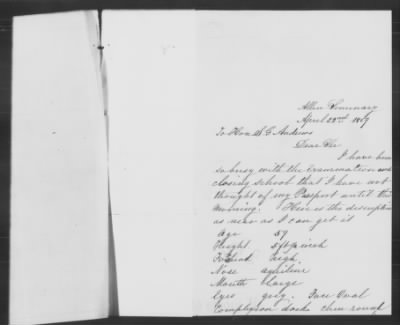 Allen Seminary
April 22nd 1869
To Hon S. G. Andrews
Dear Sir
I have been
so busy with the examination and
closing school that I have not
thought of my Passport until this
morning. Here is the description
as near as I can get it
Age 59
Height 5 ft inch
Forehead high.
Nose aquiline
Mouth large
Eyes grey. Face Oval
Complexion dark chin round